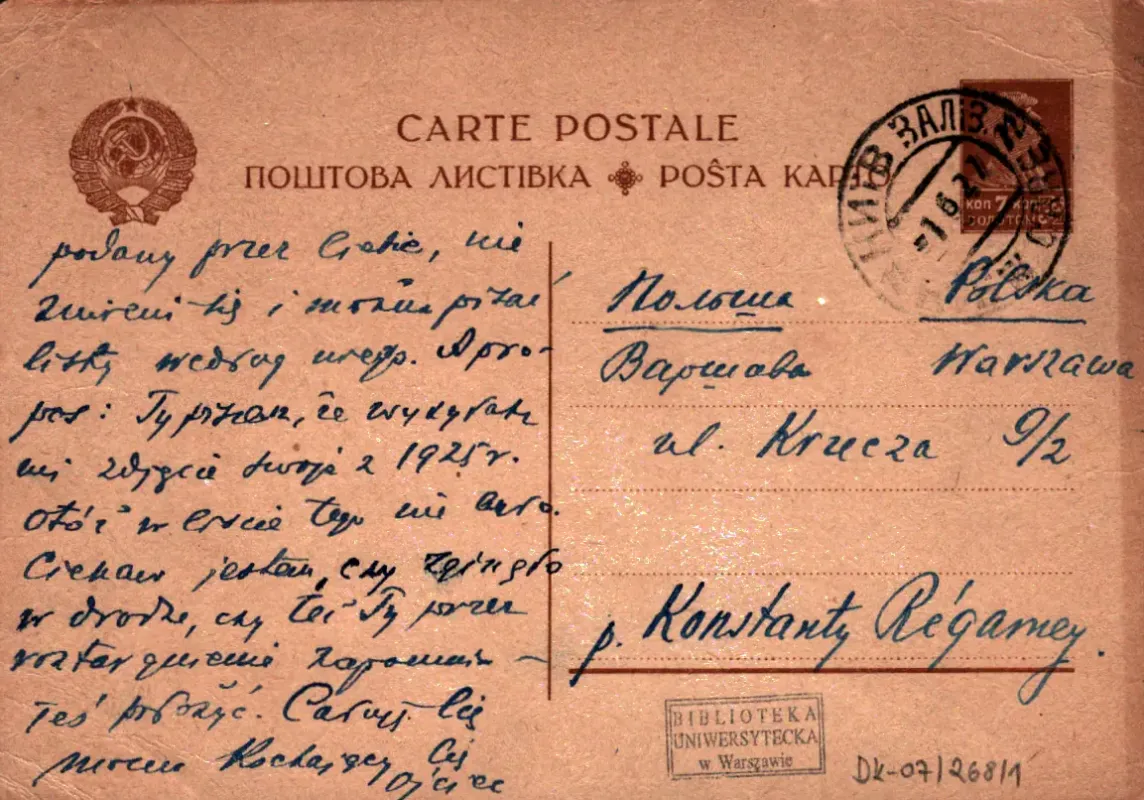 CARTE POSTALE
ПОШТОВА ЛИСТІВКА POŜTA KARTO
КОП 7 КОП
ЗОЛОТОМ
ЗАЛІЗ.
1 6 27
podany przez Ciebie, nie
zmieni się i można pisać
listy według niego. A pro-
pos: Ty piszesz, że
mi zdjęcie swoje z 1925 r.
Otóż w liście tego nie było.
Ciekaw jestem, czy zginęło
w drodze, czy też Ty przez
roztargnienie zapomnia-
łeś włożyć. Całuję Cię
mocno Kochający Cię
Ojciec
Польша Polska
Варшава Warszawa
ul. Krucza 9/2
p. Konstanty Régamey.
BIBLIOTEKA
UNIWERSYTECKA
w Warszawie
DK-07/268/1